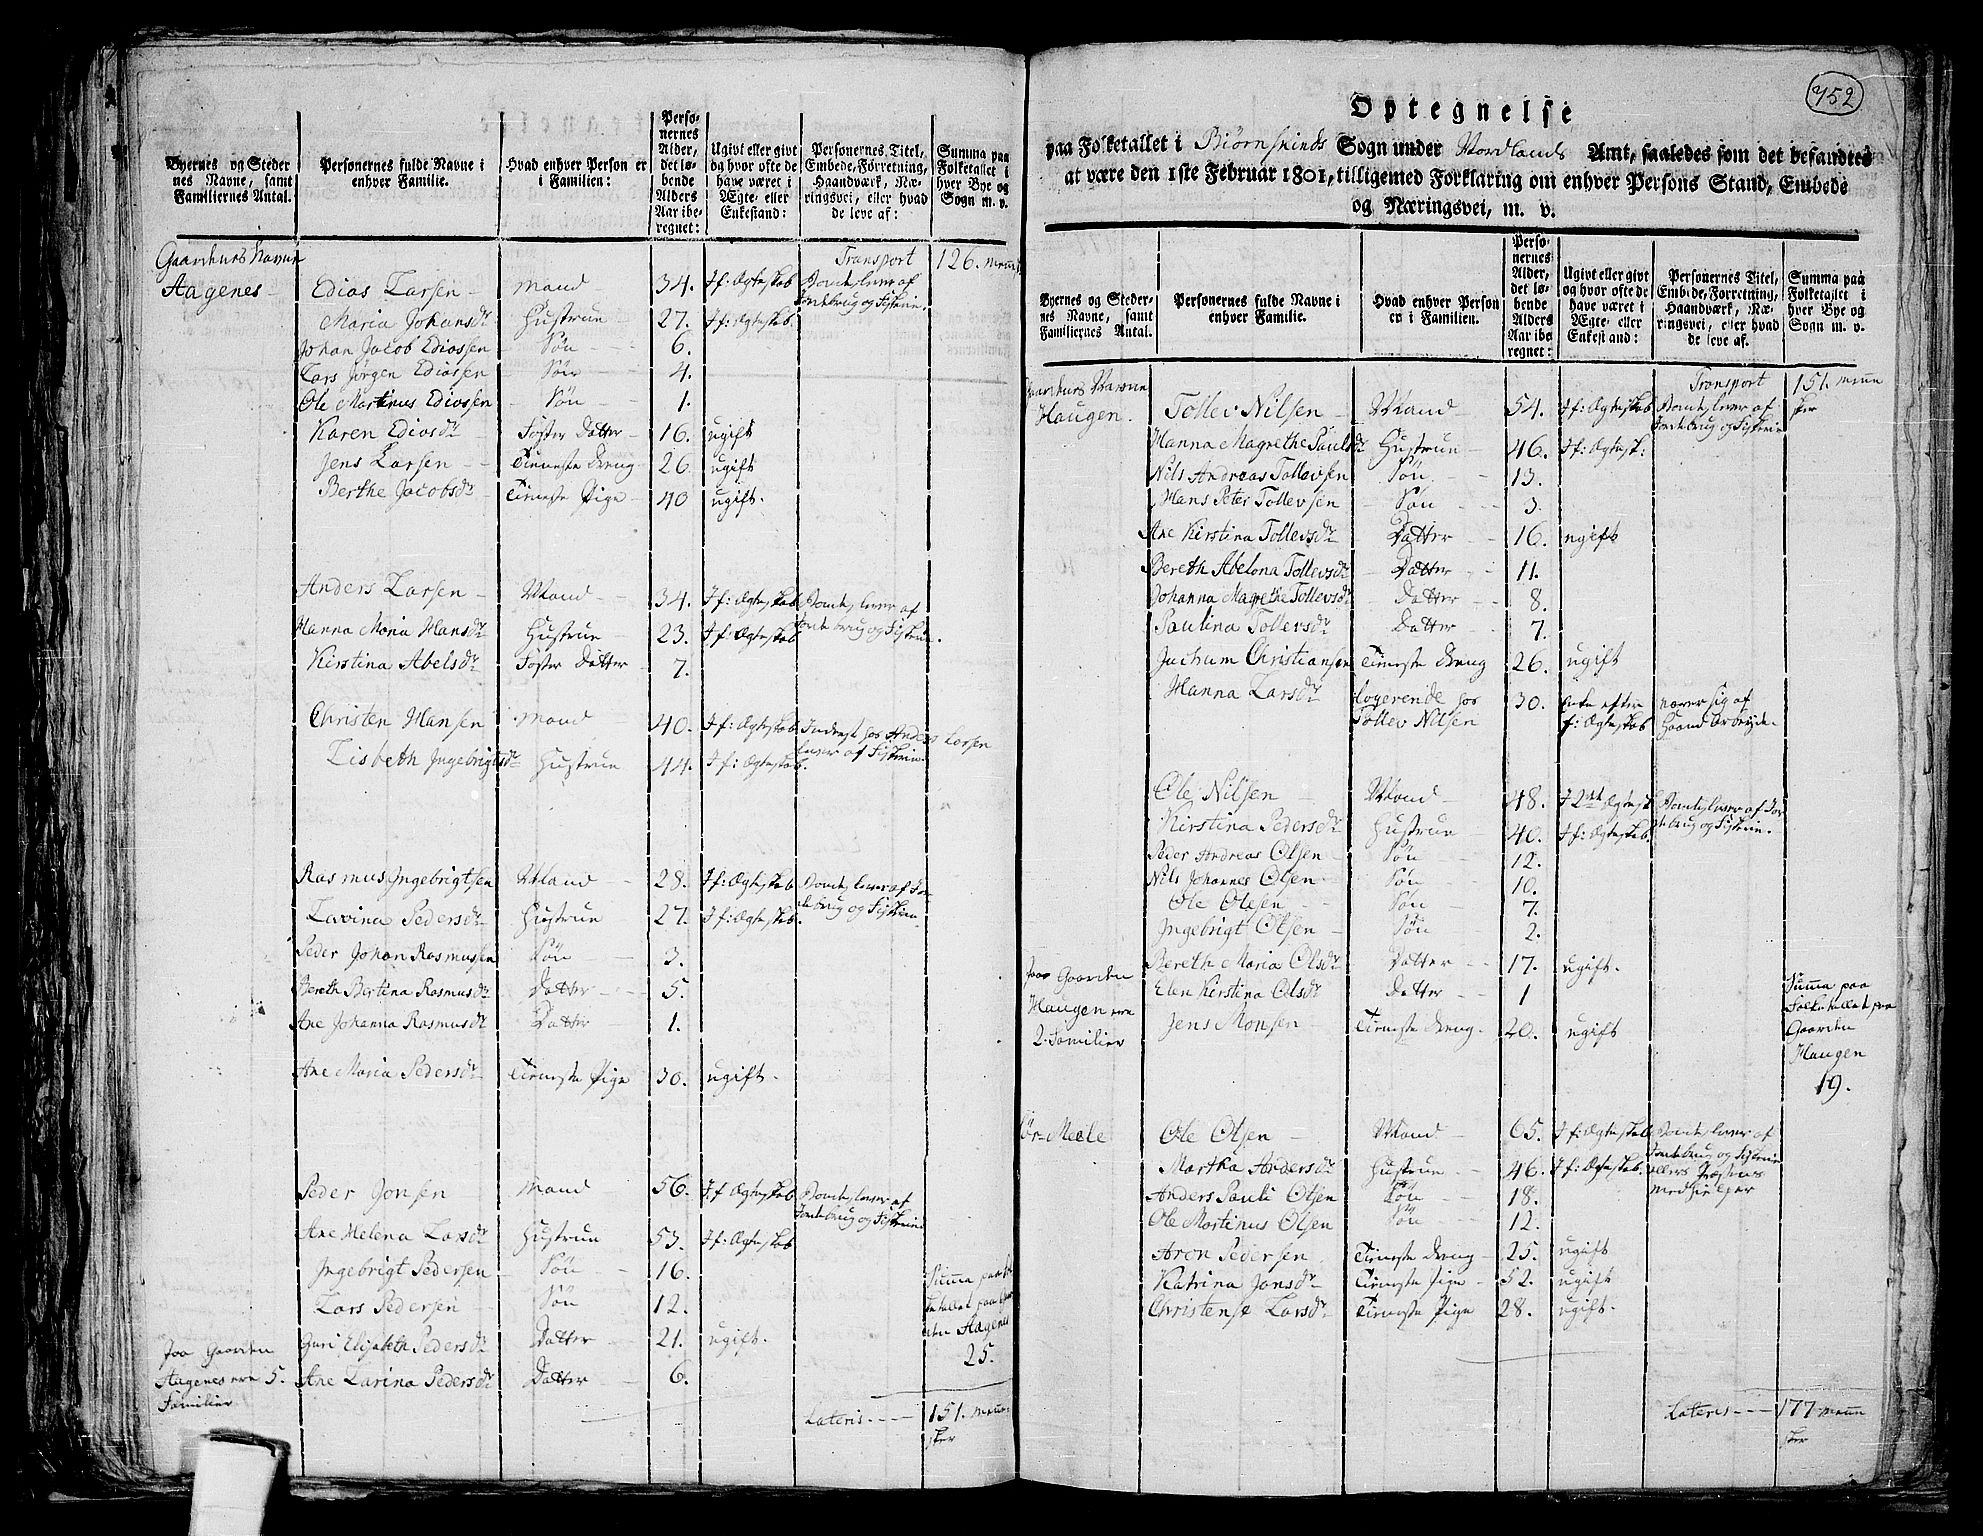 Byernes og Steder
nes Navne, samt
Familiernes Antal.
Personernes fulde Navne i
enhver Familie.
Hvad enhver Person er
i Familien:
Perso-
nernes
Alder,
det lø-
bende
Alders
Aar ibe-
regnet:
Ugivt eller givt
og hvor ofte de
have været i
Ægte- eller
Enkestand:
Personernes Titel,
Embede, Forretning,
Haandværk, Næ-
ringsvei, eller hvad
de leve af:
Summa paa
Folketallet i
hver Bye og
Sogn m. v.
Gaardenes Navne Transport 126. menn
Aagenes Edias Larsen Mand 34. I f: Ægteskab Bonde, lever af
Jordebrug og Fiskerie.
Maria Johansdr Hustrue 27. I f: Ægteskab.
Johan Jacob Ediassen Søn 6.
Lars Jørgen Ediassen Søn 4.
Ole Martinus Ediassen Søn 1.
Karen Ediasdr Foster Datter 16. ugift
Jens Larsen Tieneste Dreng 26. ugift
Berthe Jacobsdr Tieneste Pige 40 ugift.
Anders Larsen Mand 34. I f: Ægteskab Bonde, lever af
Jordebrug og Fiskerie.
Hanna Maria Hansdr Hustrue 23. I f: Ægteskab
Kirstina Abelsdr Foster Datter 7.
Christen Hansen Mand 40. I f: Ægteskab Inderst hos Anders Larsen
lever af Fiskerie.
Lisbeth Ingebrigtsdr Hustrue 44. I f: Ægteskab.
Rasmus Ingebrigtsen Mand 28. I f: Ægteskab Bonde, lever af Jor
debrug og Fiskerie.
Lavina Pedersdr Hustrue 27. I f: Ægteskab.
Peder Johan Rasmussen Søn 3.
Bereth Bertina Rasmusdr Datter 5.
Ane Johanna Rasmusdr Datter 1.
Ane Maria Pedersdr Tieneste Pige 30. ugift.
Peder Jonsen Mand 56. I f Ægteskab Bonde, lever af
Jordebrug og Fiskerie
Ane Helena Larsdr Hustrue 53. I f: Ægteskab
Ingebrigt Pedersen Søn 16.
Lars Pedersen Søn 12.
Guri Elisabeth Pedersdr Datter 21. ugift.
Ane Larina Pedersdr Datter 6.
Paa Gaarden
Aagenes ere 5.
Familier
Summa paa Fol
ketallet paa Gaar
den Aagenes
25.
Lateris 151. menne
sker
752
Optegnelse
paa Folketallet i Biørnskinds Sogn under Nordlands Amt, saaledes som det befandtes
at være den 1ste Februar 1801, tilligemed Forklaring om enhver Persons Stand, Embede
og Næringsvei, m. v.
Byernes og Steder-
nes Navne, samt
Familiernes Antal.
Personernes fulde Navne i
enhver Familie.
Hvad enhver Person
er i Familien.
Perso-
nernes
Alder,
det lø-
bende
Alders
Aar ibe-
regnet:
Ugivt eller givt
og hvor ofte de
have været i
Ægte- eller
Enkestand:
Personernes Titel,
Embede, Forretning,
Haandværk, Næ-
ringsvei, eller hvad
de leve af.
Summa paa
Folketallet i
hver Bye og
Sogn m. v.
Gaardenes Navne Transport 151. menne
sker
Haugen. Tollev Nilsen Mand 54. I f: Ægteskab Bonde, lever af
Jordebrug og Fiskerie
Hanna Magrethe Paulsdr Hustrue 46. I f: Ægtesk:
Nils Andreas Tollevsen Søn 13.
Hans Peter Tollevsen Søn 3.
Ane Kirstina Tollevsdr Datter 16. ugift
Bereth Abelona Tollevsdr Datter 11.
Johanna Magrethe Tollevsdr Datter 8.
Paulina Tollevsdr Datter 7.
Jachum Christiansen Tieneste Dreng 26. ugift
Hanna Larsdr Logerende hos
Tollev Nilsen 30. Enke efter
f: Ægteskab nærer sig af
Haand Arbeyde.
Ole Nilsen Mand 48. I 2det Ægtesk. Bonde, lever af Jor
debrug og Fiskerie.
Kirstina Pedersdr Hustrue 40. I f: Ægteskab.
Peder Andreas Olsen Søn 12.
Nils Johannes Olsen Søn 10.
Ole Olesen Søn 7.
Ingebrigt Olsen Søn 2.
Bereth Maria Olsdr Datter 17. ugift.
Elen Kirstina Olsdr Datter 1
Jens Monsen Tieneste Dreng. 20. ugift
Paa Gaarden
Haugen ere
2. Familier
Summa paa
Folketallet paa
Gaarden
Haugen
19.
Sør-Meele Ole Olsen Mand 65. I f: Ægteskab Bonde, lever af
Jordebrug og Fiskerie
Martha Andersdr Hustrue 46. I f: Ægteskab.
Præstens
Medhielper
Anders Pauli Olsen Søn 18.
Ole Martinus Olsen Søn 12.
Aron Pedersen Tieneste Dreng 25. ugift
Katrina Jonsdr Tieneste Pige 52. ugift
Christense Larsdr Tieneste Pige 28. ugift.
Lateris 177 menne
sker